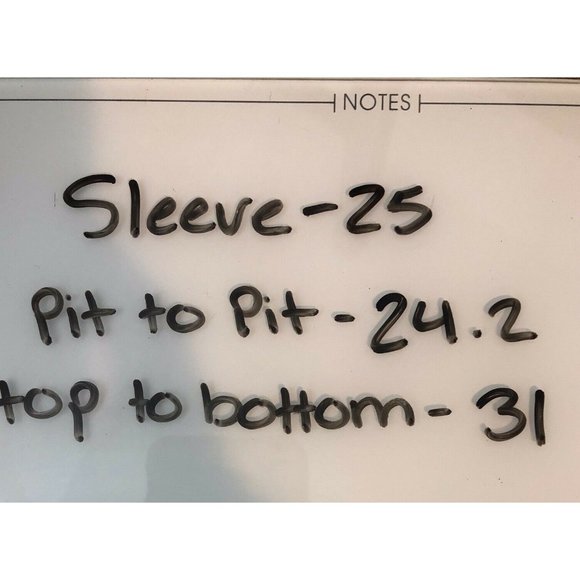 NOTES
Sleeve-25
Pit to Pit-24.2
top to bottom-31